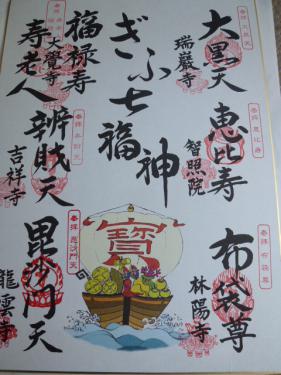 大黒天
瑞巌寺
恵比寿
智照院
布袋尊
林陽寺
ぎふ七福神
福禄寿
大寳寺
寿老人
辨財天
吉祥寺
毘沙門天
龍雲寺
寶